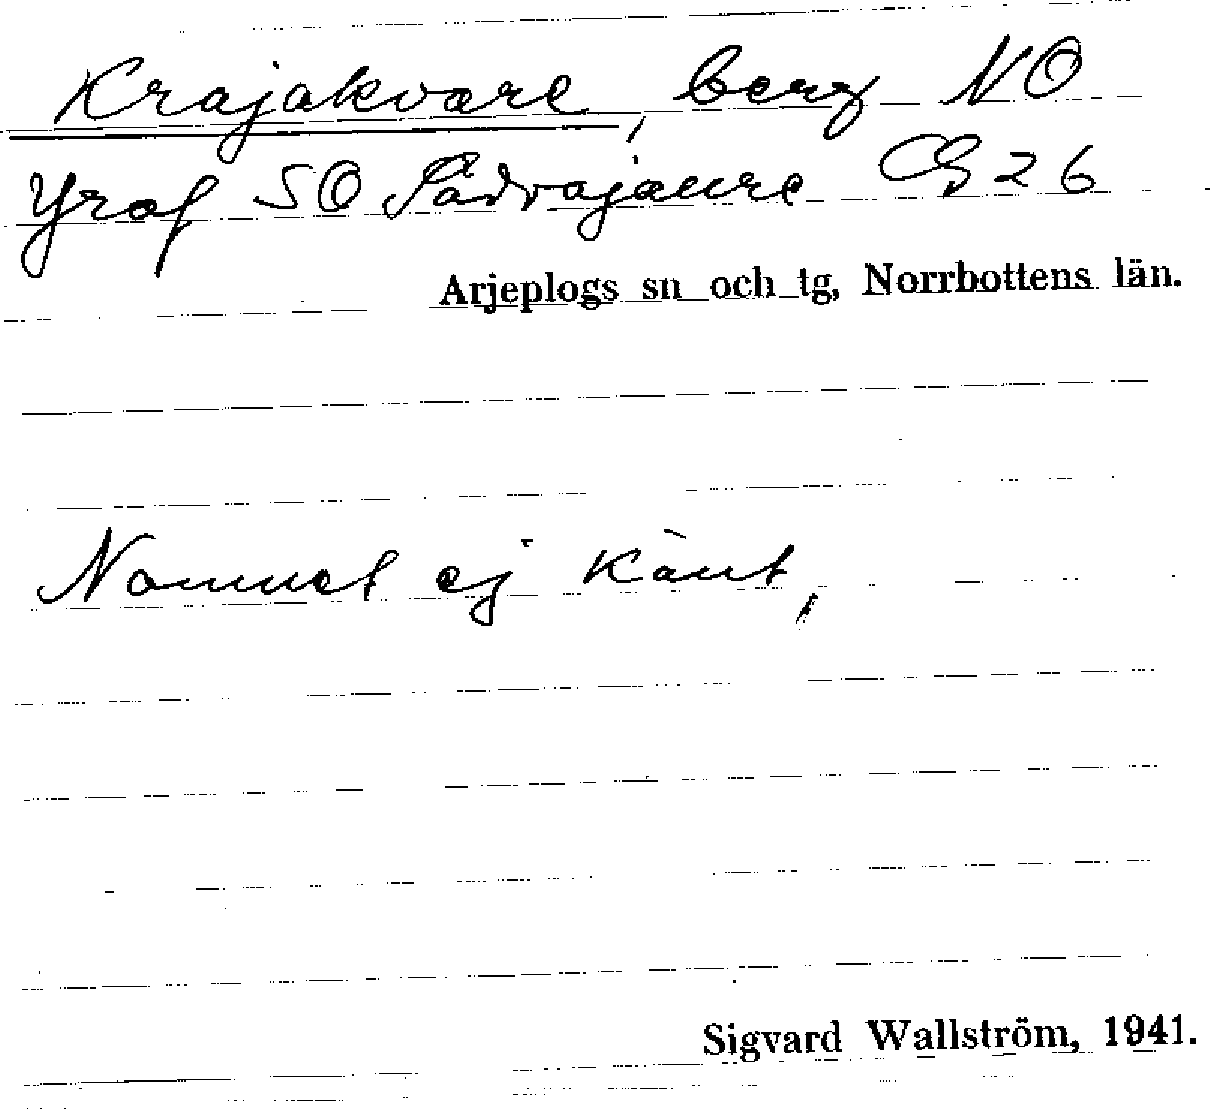 Krajakvare, berg NO
Yraf SO Sädvajaure CG 26
Arjeplogs sn och tg, Norrbottens län.
Namnet ej känt,
Sigvard Wallström, 1941.